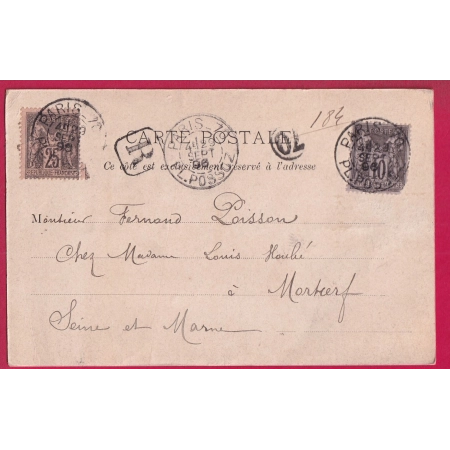 184
PARIS 70
PARIS 70
PARIS 70
R
CARTE POSTALE
Ce côté est exclusivement réservé à l'adresse
SEPT
PL. POSSOZ
25
10
Monsieur Fernand Poisson
Chez Madame Louis Houbé
à Mortcerf
Seine et Marne